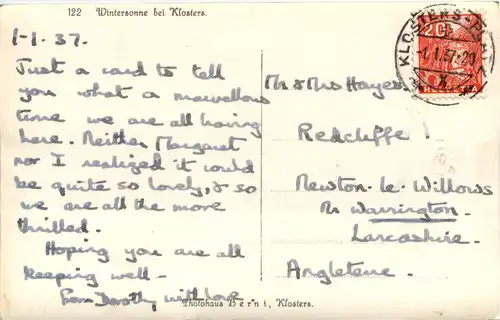 122 Wintersonne bei Klosters.
1-1.37.
Just a card to tell
you what a marvellous
time we are all having
here. Neither Margaret
nor I realized it would
be quite so lovely, & so
we are all the more
thrilled.
Hoping you are all
keeping well -
From Dorothy with love
Mr & Mrs Hayes
Redcliffe
Newton-le-Willows
Nr Warrington.
Lancashire.
Angleterre.
Photohaus Berni, Klosters.
KLOSTERS-
1.1.37.20
20
HELVETIA